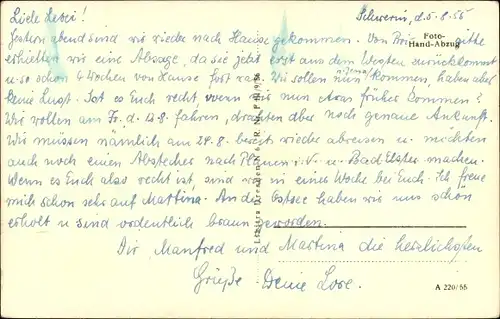 Liebe Lebei! Schwerin, d. 5.8.55
Gestern abend sind wir wieder nach Hause gekommen. Von Brigitte
erhielten wir eine Absage, da sie jetzt erst aus dem Westen zurückkommt
u. so schon 6 Wochen von Hause fort war. Wir sollen nun kommen, haben aber
keine Lust. Ist es Euch recht, wenn wir nun etwas früher kommen?
Wir wollen am Fr. d. 12.8. fahren, drahten aber noch genaue Ankunft.
Wir müssen nämlich am 24.8. bereits wieder abreisen u. möchten
auch noch einen Abstecher nach Plauen i.V. u. Bad Elster machen.
Wenn es Euch also recht ist, sind wir in einer Woche bei Euch. Ich freue
mich schon sehr auf Martina. An der Ostsee haben wir uns schön
erholt u. sind ordentlich braun geworden.
Dir, Manfred und Martina die herzlichsten
Grüße Deine Lore.
Foto-
Hand-Abzug
A 220/55